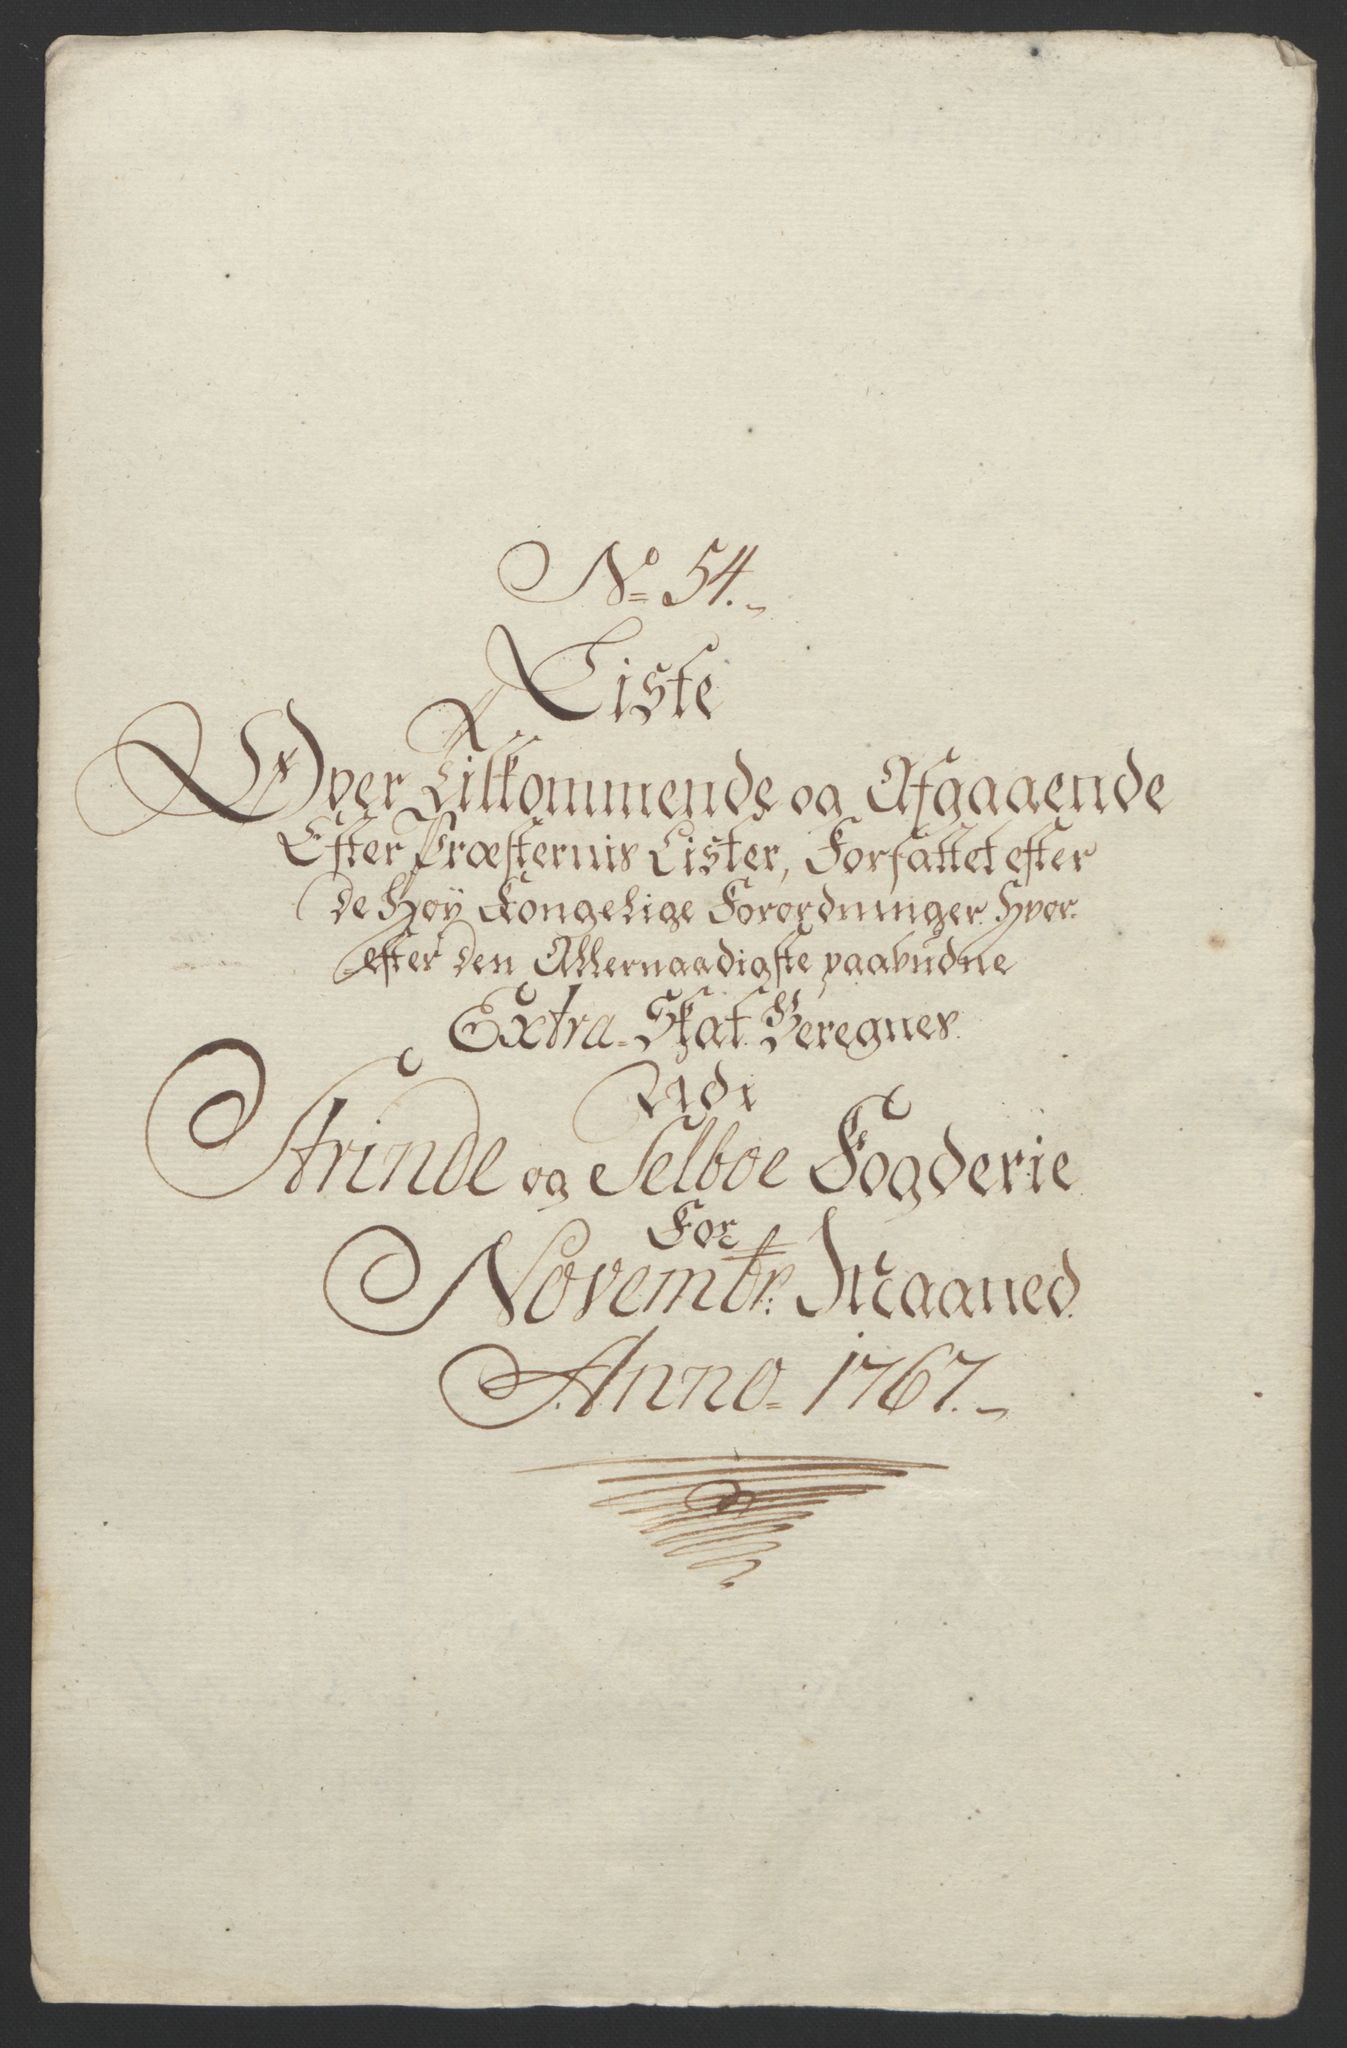 No 54.
Liste
Over Tilkommende og Afgaaende
Efter Præsternis Lister, Forfattet efter
de Høÿ Kongelige Forordninger Hvor-
efter den Allernaadigste paabudne
Extra-Skat Beregnes
Udi
Strinde og Selboe Fogderie
For
Novembr: Maaned
Anno 1767.